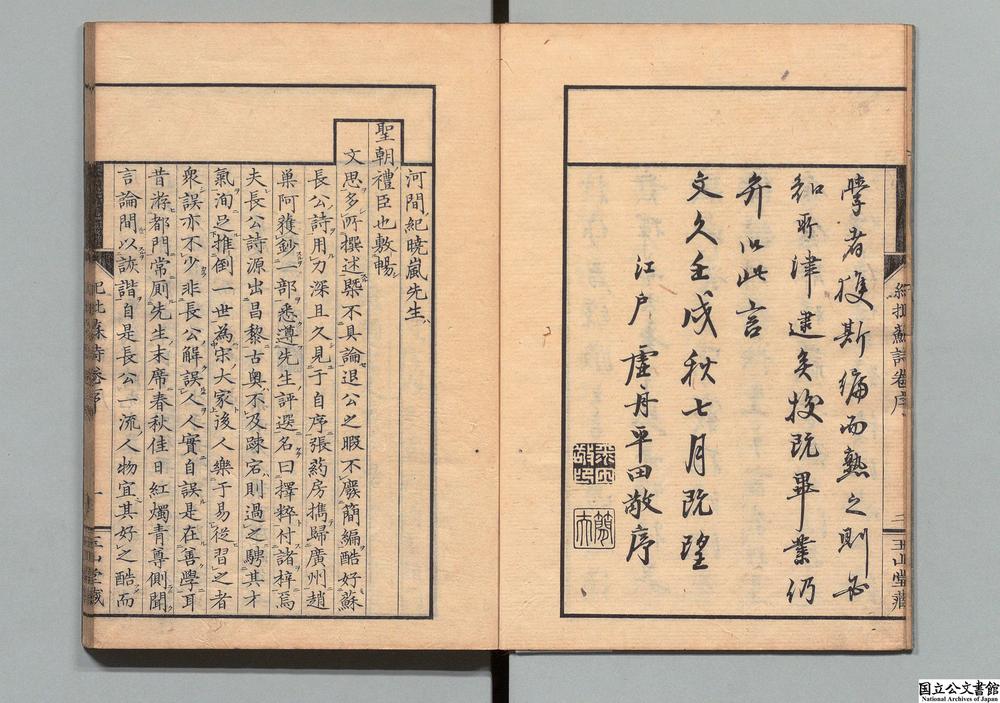 學者獲斯編而熟之則必
知所津逮矣校既畢業仍
弁以此言
文久壬戌秋七月既望
江戶 虛舟平田敬序
紀批蘇詩卷序
二
玉山堂藏
河間紀曉嵐先生
聖朝禮臣也敷暢
文思多所撰述槩不具論退公之暇不廢簡編酷好蘇
長公詩用力深且久見于自序張葯房攜歸廣州趙
巢阿獲鈔一部悉遵先生評選名曰擇粹付諸梓焉
夫長公詩源出昌黎古奧不及踈宕則過之騁其才
氣洵足推倒一世為宋大家後人樂于易從習之者
衆誤亦不少非長公觧誤人人實自誤是在善學耳
昔游都門常厠先生末席春秋佳日紅燭青尊側聞
言論間以詼諧自是長公一流人物宜其好之酷而
紀批蘇詩卷序
一
玉山堂藏
国立公文書館
National Archives of Japan